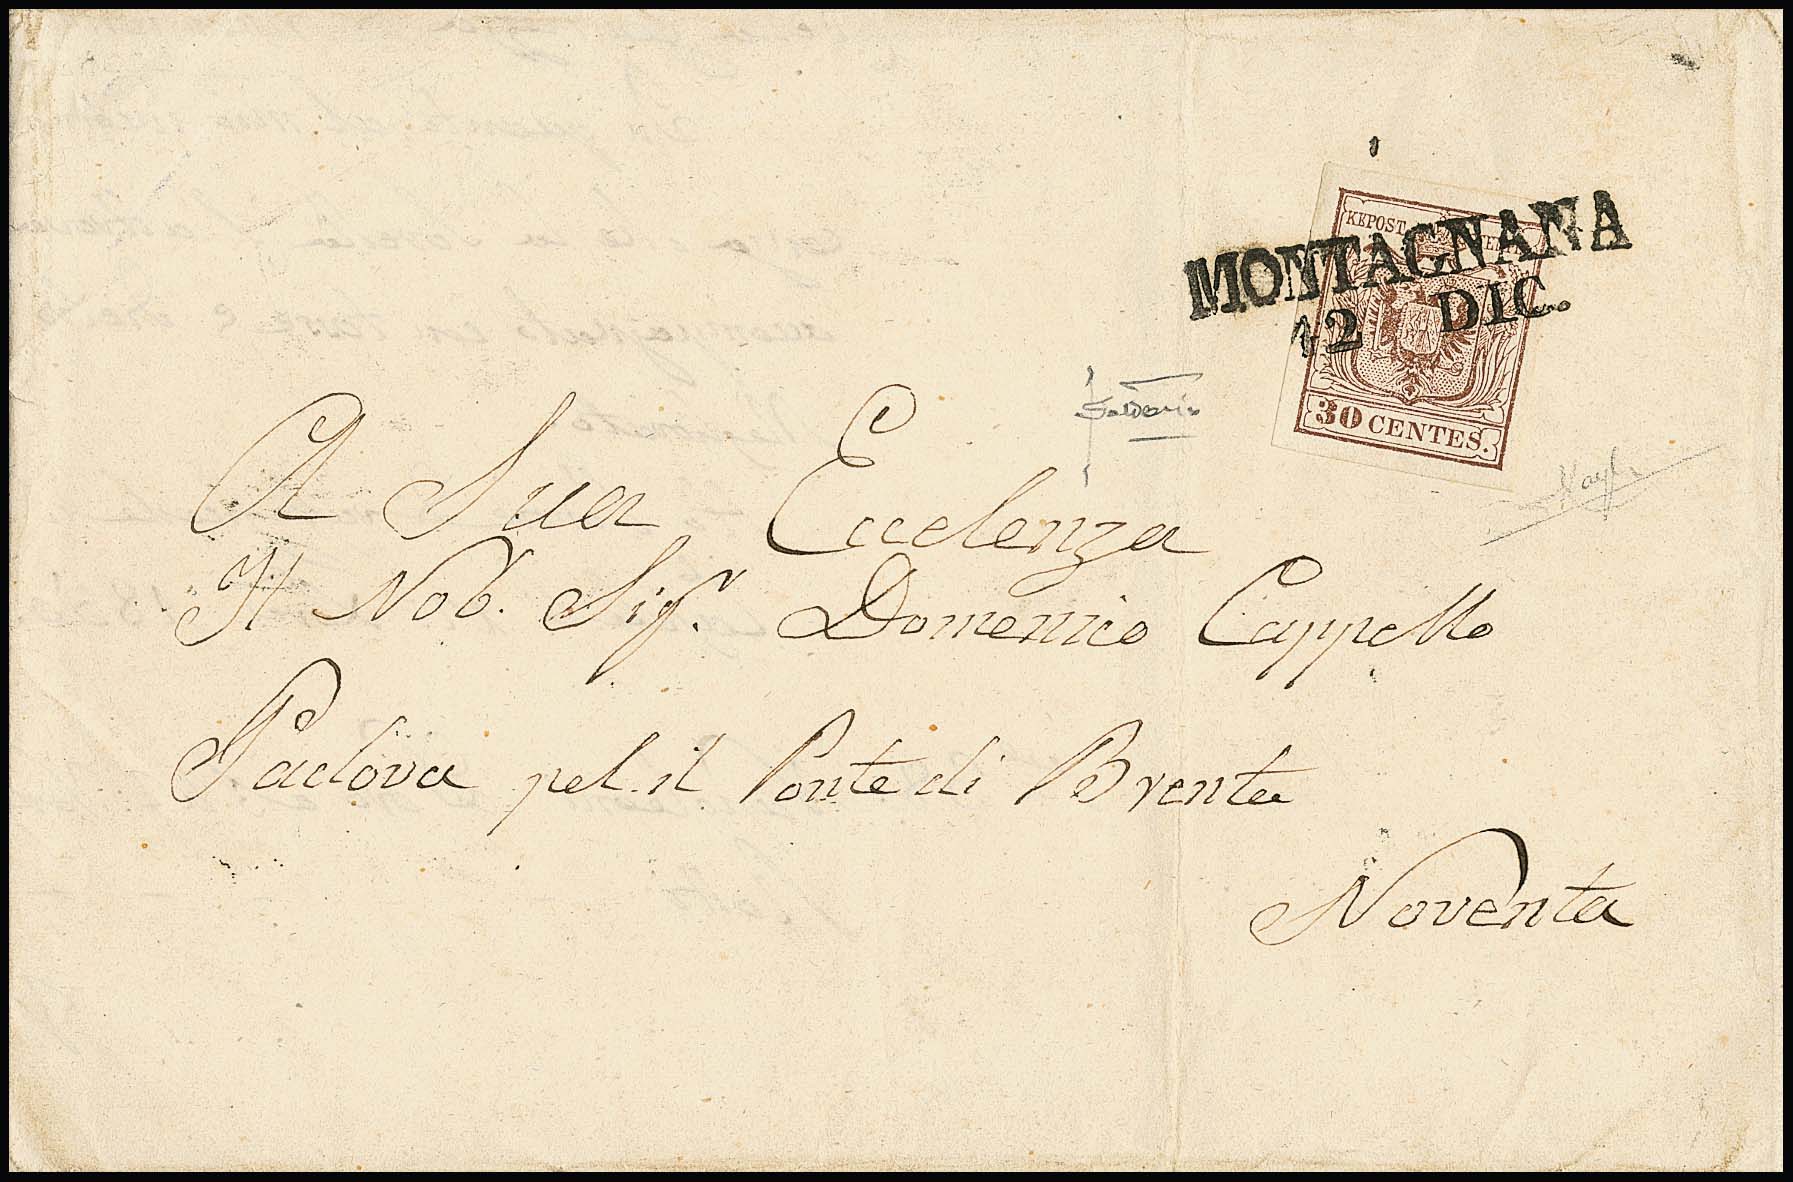 KKPOST
MONTAGNANA
12 DIC.
30 CENTES.
A Sua Eccelenza
Il Nob. Sigr. Domenico Cappello
Padova pel il Ponte di Brenta
Noventa